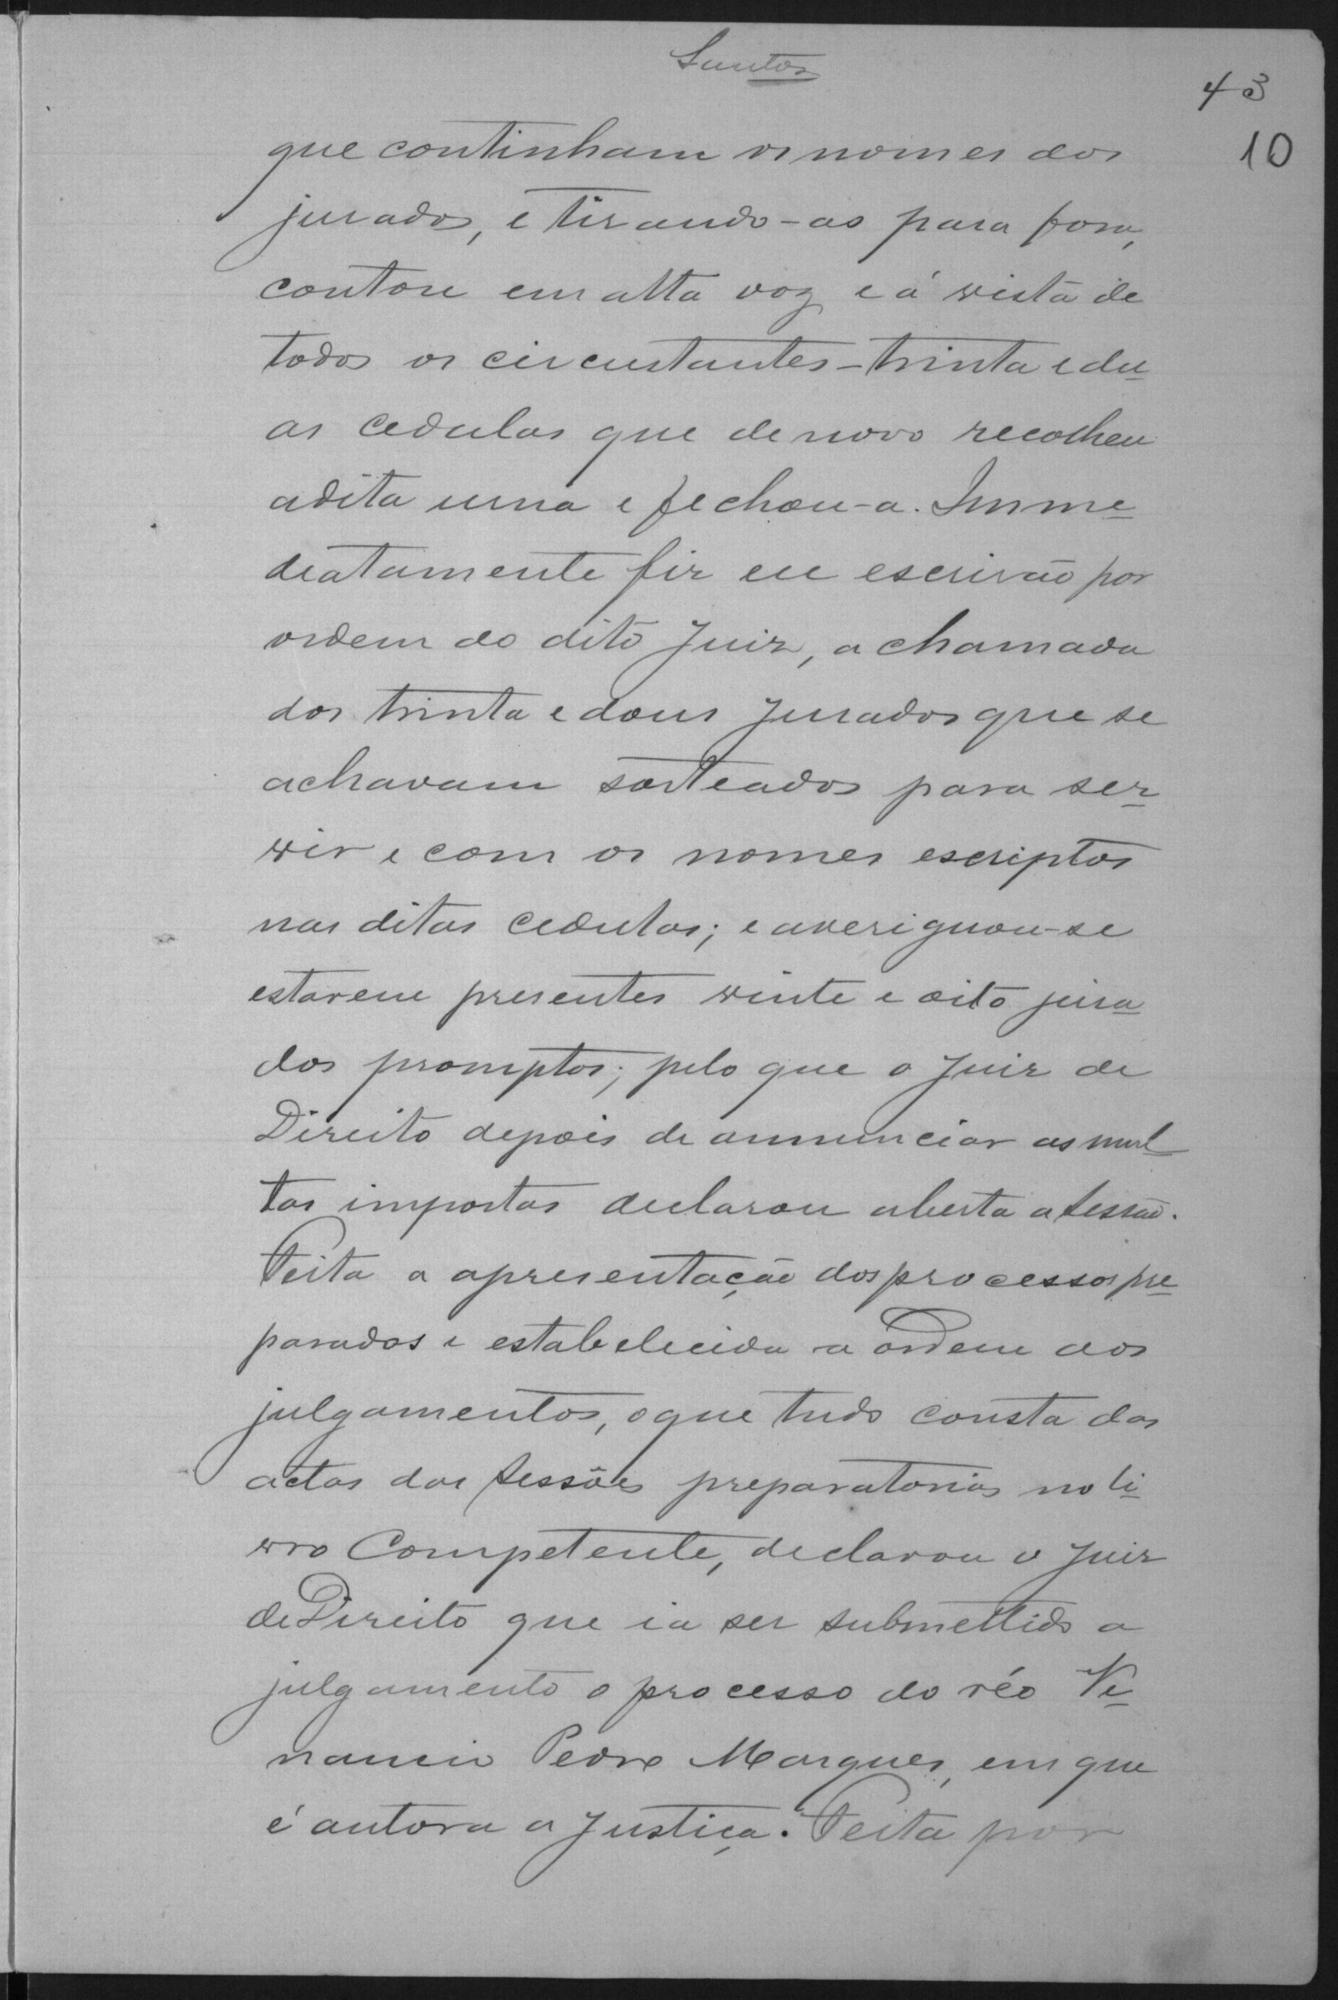 Santos
43
10
que continham os nomes dos
jurados, e tirando-as para fora,
contou em alta voz e á vista de
todos os circustantes - trinta e du-
as cedulas que de novo recolheu
a dita urna e fechou-a. Imme-
diatamente fiz eu escrivão por
ordem do dito Juiz, a chamada
dos trinta e dous Jurados que se
achavam sorteados para ser-
vir e com os nomes escriptos
nas ditas cedulas; e averiguou-se
estarem presentes vinte e oito jura-
dos promptos; pelo que o Juiz de
Direito depois de annunciar as mul-
tas impostas declarou aberta a sessão.
Feita a apresentação dos processos pre-
parados e estabelecida a ordem dos
julgamentos, o que tudo consta das
actas das sessões preparatorias no li-
vro Competente, declarou o Juiz
de Direito que ia ser submettido a
julgamento o processo do réo Ve-
nancio Pedro Marques, em que
é autora a Justiça. Feita por